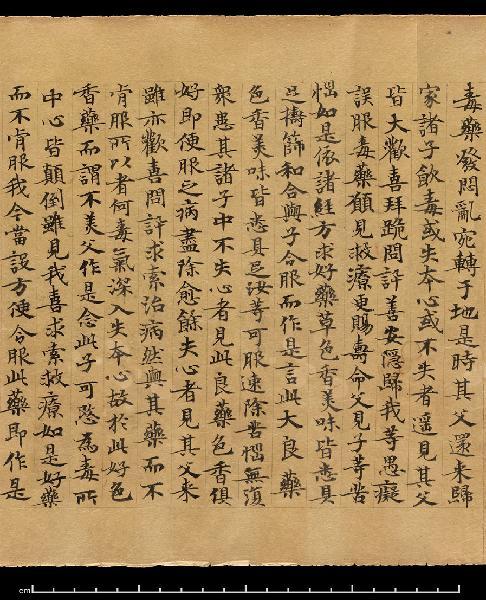 毒藥發悶亂宛轉于地是時其父還來歸
家諸子飲毒或失本心或不失者遙見其父
皆大歡喜拜跪問訊善安隱歸我等愚癡
誤服毒藥願見救療更賜壽命父見子等苦
惱如是依諸經方求好藥草色香美味皆悉具
足擣篩和合與子令服而作是言此大良藥
色香美味皆悉具足汝等可服速除苦惱無復
衆患其諸子中不失心者見此良藥色香俱
好即便服之病盡除愈餘失心者見其父來
雖亦歡喜問訊求索治病然與其藥而不
肯服所以者何毒氣深入失本心故於此好色
香藥而謂不美父作是念此子可愍為毒所
中心皆顛倒雖見我喜求索救療如是好藥
而不肯服我今當設方便令服此藥即作是
cm